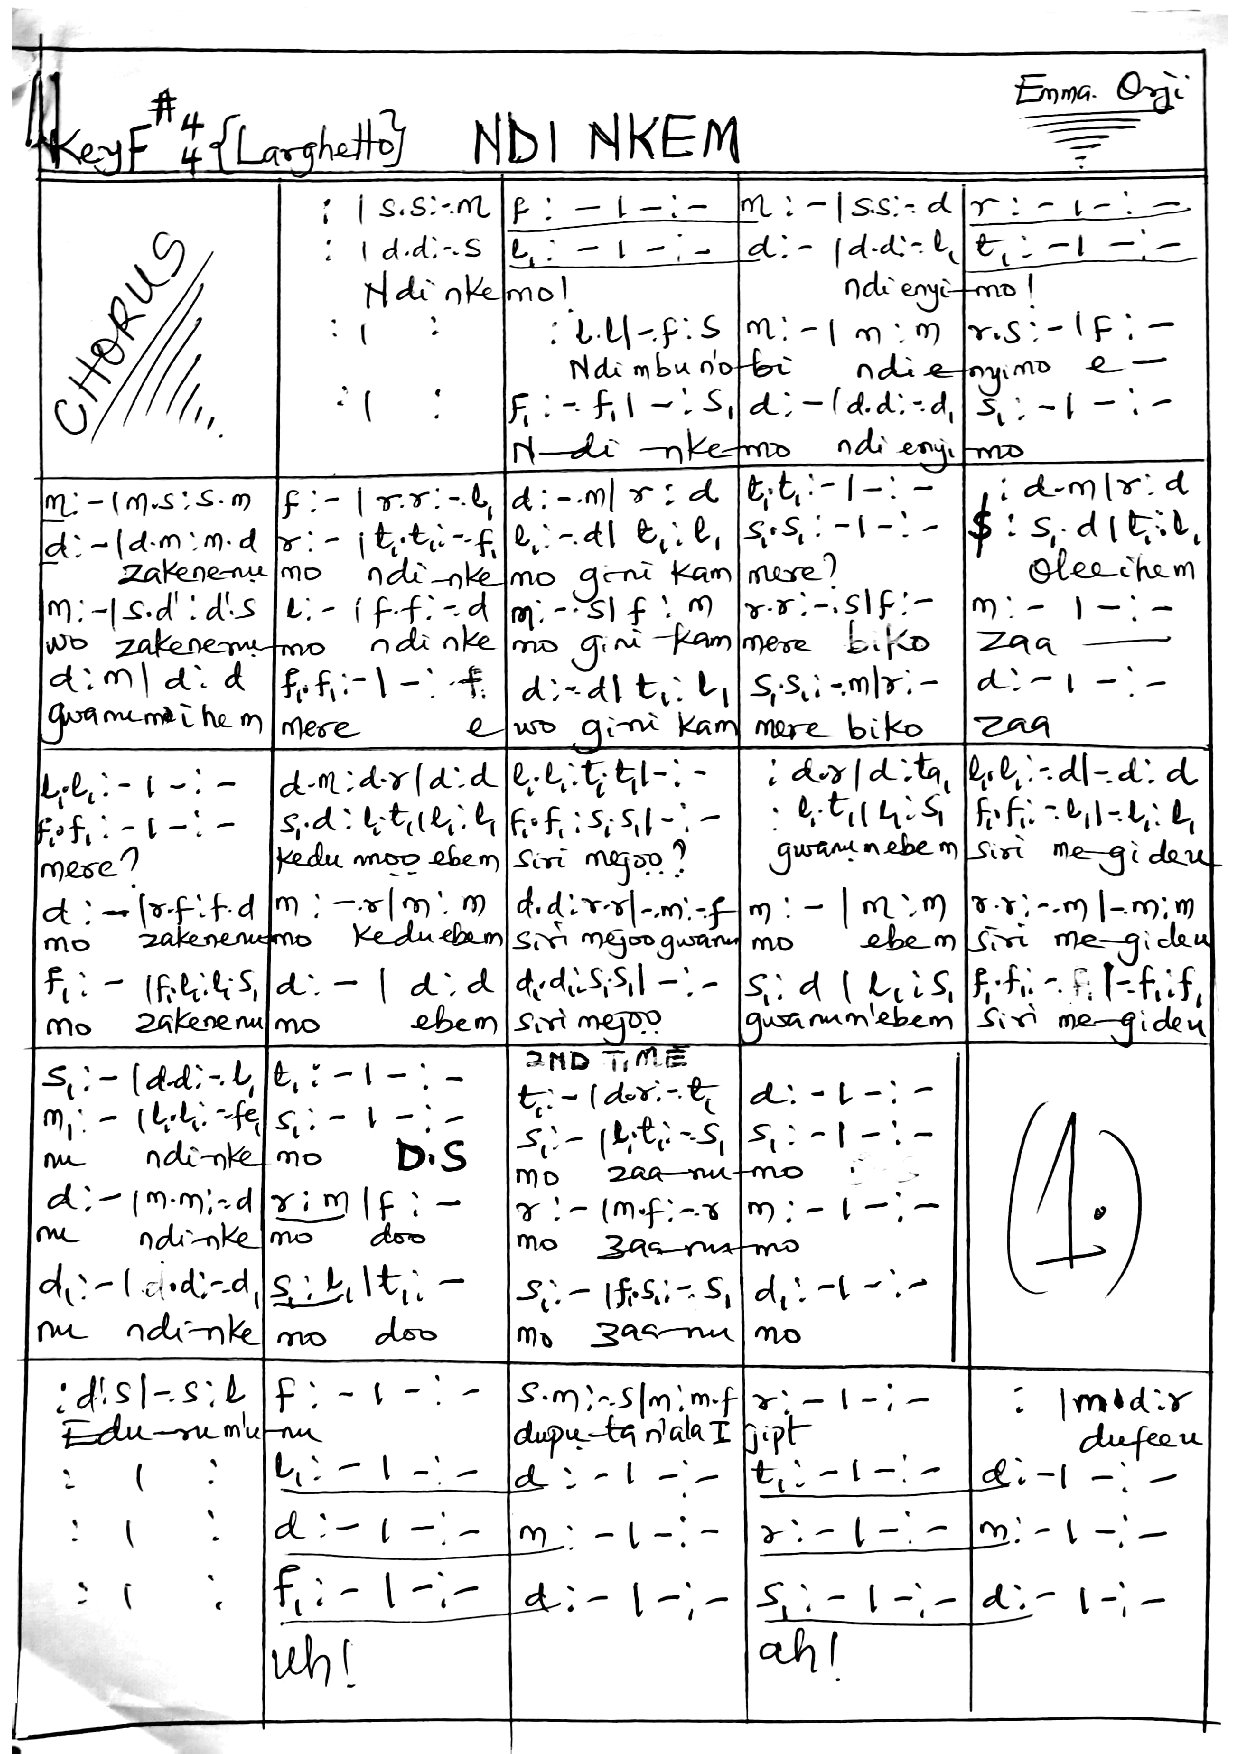 Emma. Orji
Key F# 4/4 {Larghetto} NDI NKEM
CHORUS
: | s.s:-.m | f : - | - : - | m : - | s.s:-.d | r : - | - : -
: | d.d:-.s | l₁ : - | - : - | d : - | d.d:-.l₁ | t₁ : - | - : -
Ndi nkemo! ndi enyi-mo!
: | : | : l.l | -.f : s | m : - | m : m | r.s : - | f : -
Ndi mbu n'o-bi ndi e-nyimo e —
: | : | f₁ : -.f₁ | - : s₁ | d : - | d.d:-.d₁ | s₁ : - | - : -
N-di -nke-mo ndi enyi-mo
m : - | m.s : s.m | f : - | r.r:-.l₁ | d : -.m | r : d | t₁.t₁ : - | - : - | : d.m | r : d
d : - | d.m : m.d | r : - | t₁.t₁:-.f₁ | l₁ : -.d | t₁ : l₁ | s₁.s₁ : - | - : - | : s₁.d | t₁ : l₁
zakene-nu mo ndi-nke mo gini kam mere? Olee ihem
m : - | s.d' : d'.s | l : - | f.f:-.d | m : -.s | f : m | r.r : -.s | f : - | m : - | - : -
wo zakenenu-mo ndi nke mo gini -kam mere biko zaa —
d : m | d : d | f₁.f₁ : - | - : f₁ | d : -.d | t₁ : l₁ | s₁.s₁ : -.m | r : - | d : - | - : -
gwanum ihem mere e wo gini kam mere biko zaa
l₁.l₁ : - | - : - | d.m : d.r | d : d | l₁.l₁ : t₁.t₁ | - : - | : d.r | d : ta₁ | l₁.l₁ : -.d | -.d : d
f₁.f₁ : - | - : - | s₁.d : l₁.t₁ | l₁ : l₁ | f₁.f₁ : s₁.s₁ | - : - | : l₁.t₁ | l₁ : s₁ | f₁.f₁ : -.l₁ | -.l₁ : l₁
mere? kedu moo ebem siri mejoo? gwanum ebem siri me-gideu
d : - | r.f : f.d | m : -.r | m : m | d.d : r.r | -.m : -.f | m : - | m : m | r.r : -.m | -.m : m
mo zakenenu-mo keduebem siri mejoo gwanu mo ebem siri me-gideu
f₁ : - | f₁.l₁ : l₁.s₁ | d : - | d : d | d.d : s₁.s₁ | - : - | s₁ : d | l₁ : s₁ | f₁.f₁ : -.f₁ | -.f₁ : f₁
mo zakenenu mo ebem siri mejoo gwanum'ebem siri me-gideu
2ND TIME
s₁ : - | d.d:-.l₁ | t₁ : - | - : - | t₁ : - | d.r:-.t₁ | d : - | - : -
m₁ : - | l₁.l₁:-.fe₁ | s₁ : - | - : - | s₁ : - | l₁.t₁:-.s₁ | s₁ : - | - : -
nu ndi-nke mo D.S mo zaa-nu-mo
d : - | m.m:-.d | r : m | f : - | r : - | m.f:-.r | m : - | - : -
nu ndi-nke mo doo mo zaa-nu-mo
d₁ : - | d.d:-.d₁ | s₁ : l₁ | t₁ : - | s₁ : - | f₁.s₁:-.s₁ | d₁ : - | - : -
nu ndi-nke mo doo mo zaa-nu mo
(1.)
: d.s | -.s : l | f : - | - : - | s.m : -.s | m : m.f | r : - | - : - | : | m.d : r
Edu-rum'u-nu dupu-ta n'ala I jipt dufeeu
: | : | l₁ : - | - : - | d : - | - : - | t₁ : - | - : - | d : - | - : -
: | : | d : - | - : - | m : - | - : - | r : - | - : - | m : - | - : -
: | : | f₁ : - | - : - | d : - | - : - | s₁ : - | - : - | d : - | - : -
uh! ah!